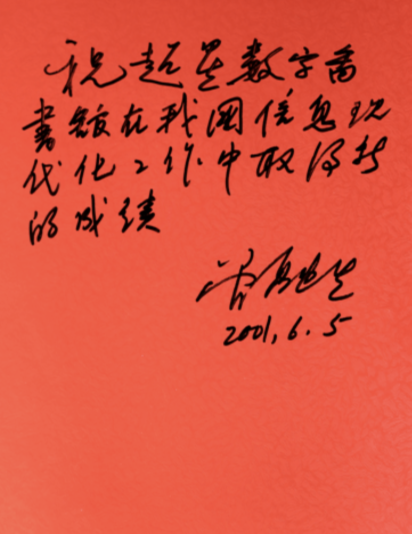 祝超星数字图
書馆在我国信息现
代化工作中取得新
的成绩
2001.6.5